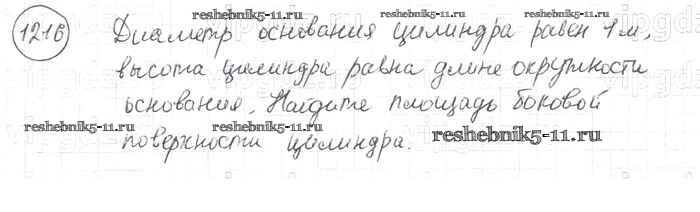 1216
reshebnik5-11.ru reshebnik5-11.ru
Диаметр основания цилиндра равен 1 м,
высота цилиндра равна длине окружности
основания. Найдите площадь боковой
reshebnik5-11.ru reshebnik5-11.ru reshebnik5-11.ru
поверхности цилиндра.